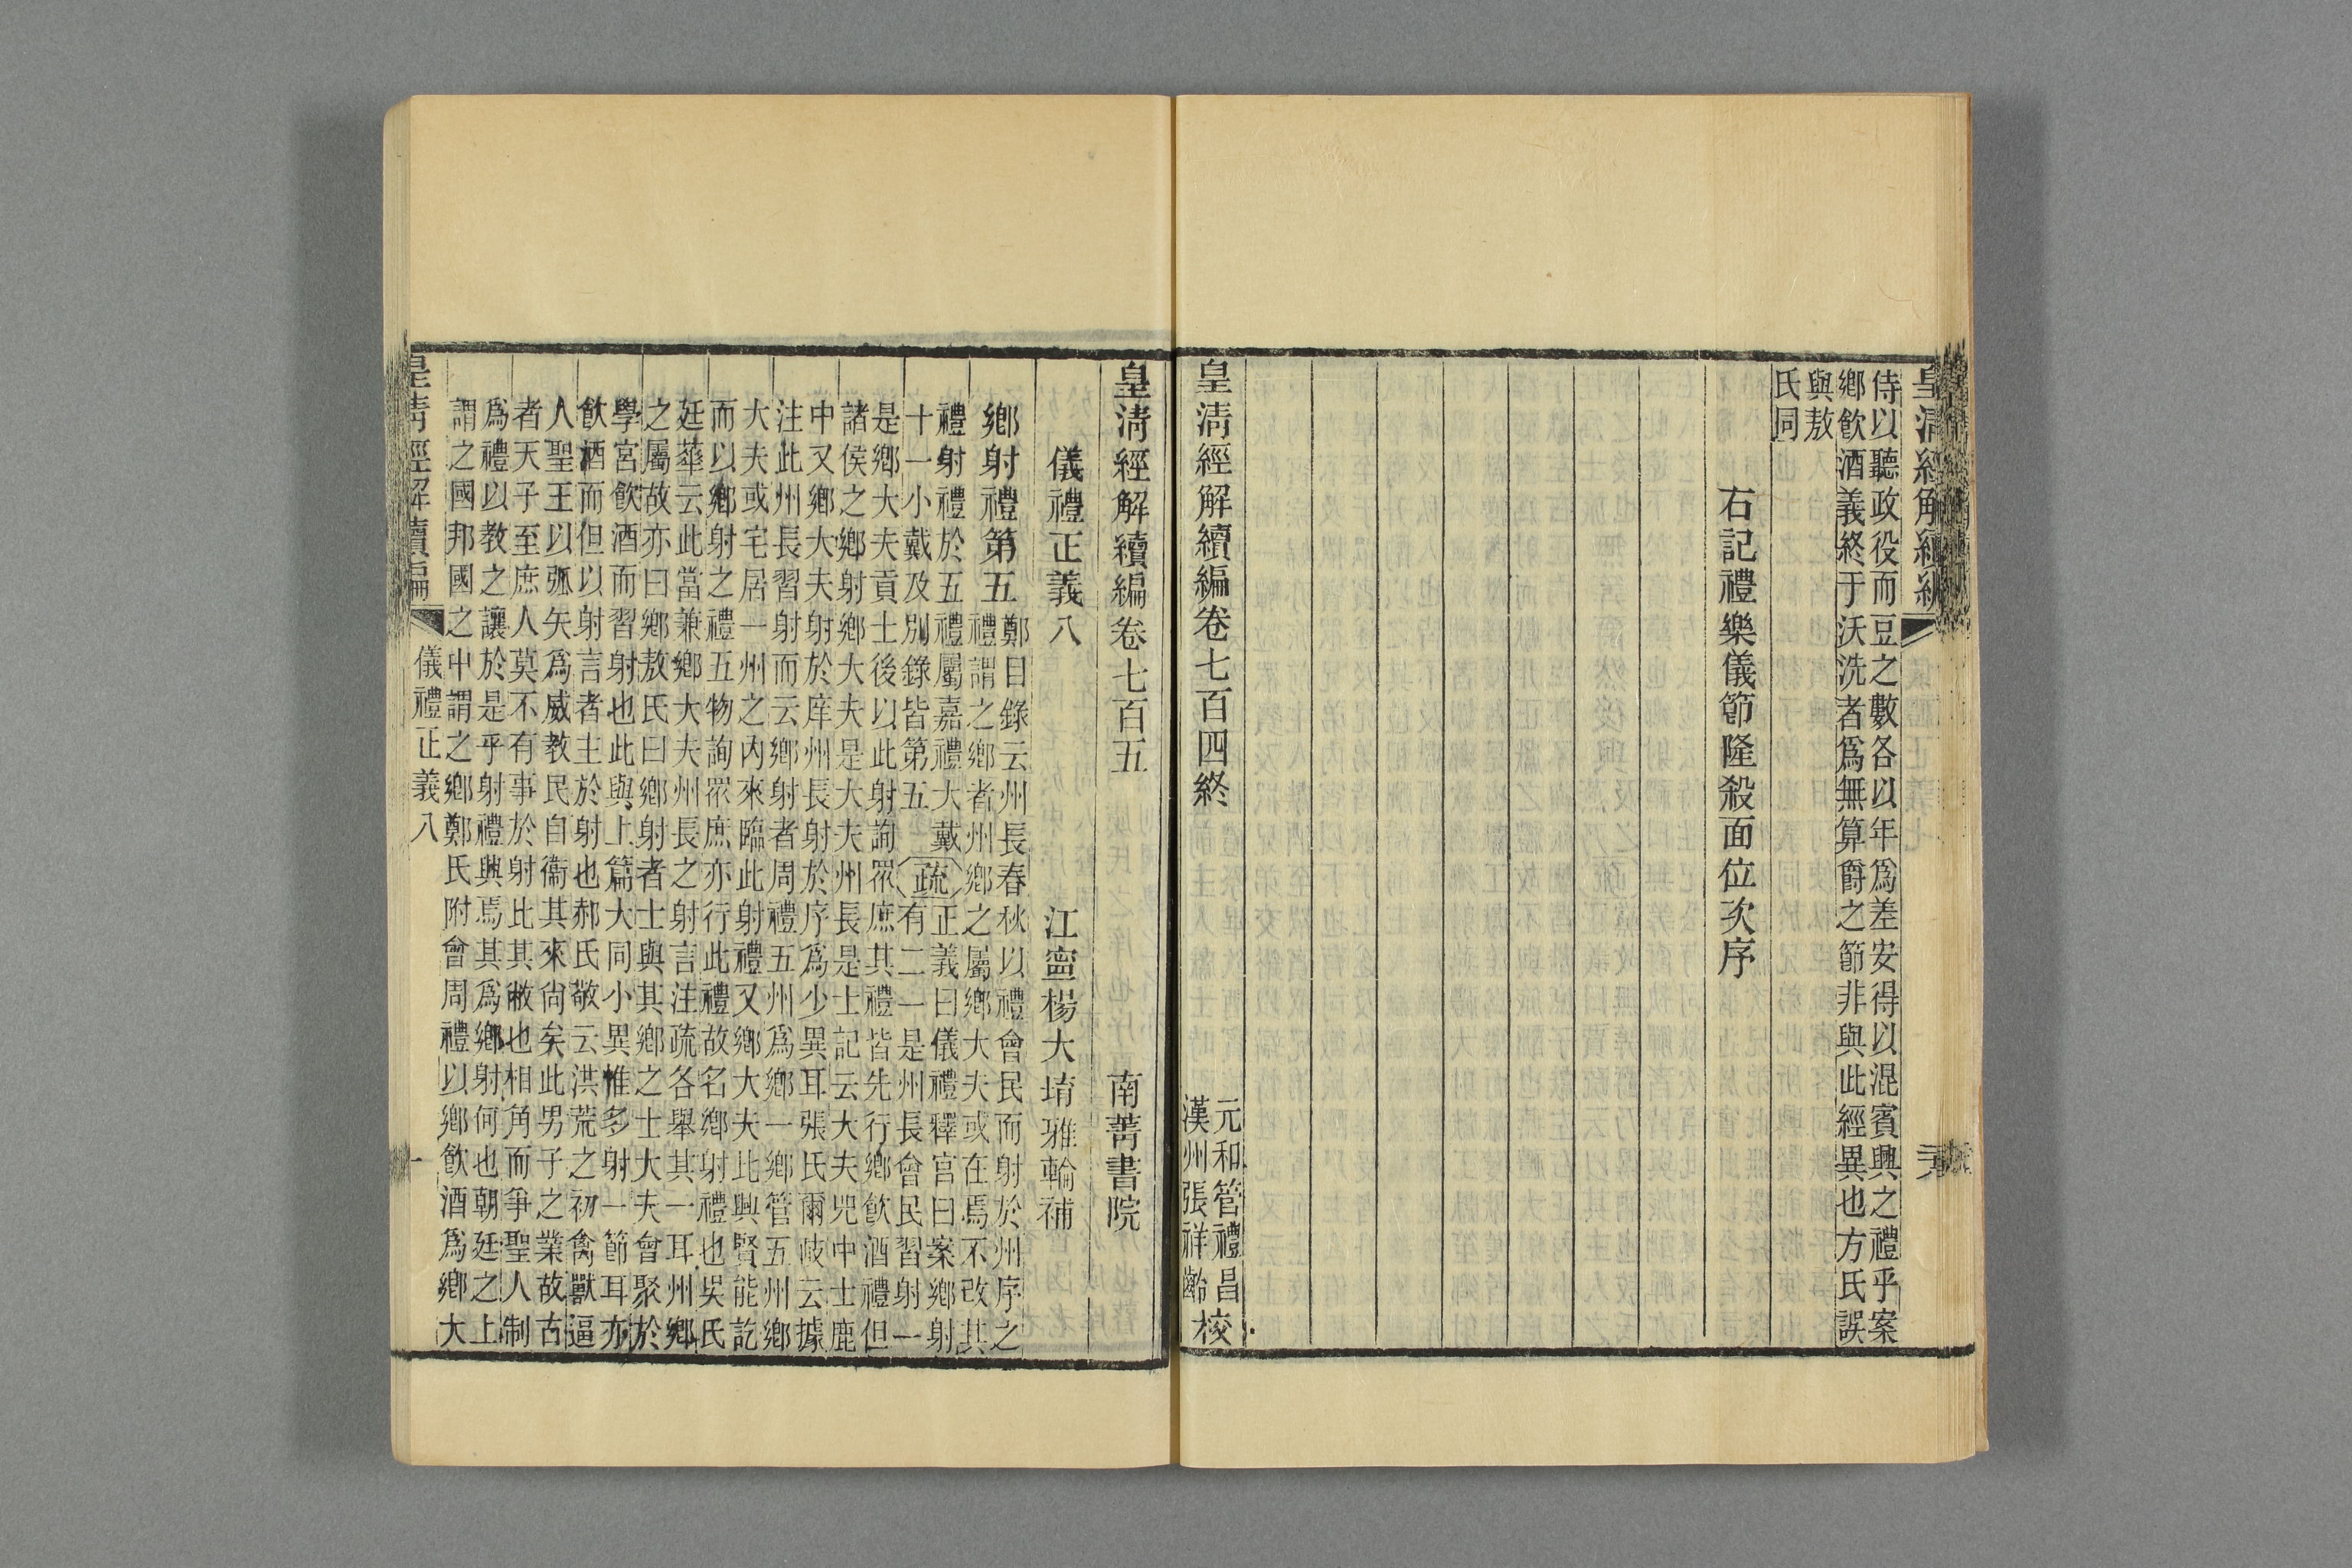 皇清經解續編
侍以聽政役而豆之數各以年爲差安得以混賓興之禮乎案
鄉飲酒義終于沃洗者爲無算爵之節非與此經異也方氏誤
與敖
氏同
右記禮樂儀節隆殺面位次序
皇清經解續編卷七百四終
元和管禮昌
漢州張祥齡
校
皇清經解續編卷七百五 南菁書院
儀禮正義八 江寧楊大堉雅輪補
鄉射禮第五
鄭目錄云州長春秋以禮會民而射於州序之
禮謂之鄉者州鄉之屬鄉大夫或在焉不改其
禮射禮於五禮屬嘉禮大戴
十一小戴及別錄皆第五
疏
正義曰儀禮釋宮曰案鄉射
有二一是州長會民習射一
是鄉大夫貢士後以此射詢眾庶其禮皆先行鄉飲酒禮但
諸侯之鄉射鄉大夫是大夫州長是士記云大夫兕中士鹿
中又鄉大夫射於庠州長射於序爲少異耳張氏爾歧云據
注此州長習射而云鄉射者周禮五州爲鄉一鄉管五州鄉
大夫或宅居一州之內來臨此射禮又鄉大夫此興賢能訖
而以鄉射之禮五物詢眾庶亦行此禮故名鄉射禮也吳氏
廷華云此當兼鄉大夫州長之射言注疏各舉其一耳州鄉
之屬故亦曰鄉敖氏曰鄉射者士與其鄉之士大夫會聚於
學宮飲酒而習射也此與上篇大同小異惟多射一節耳亦
飲酒而但以射言者主於射也郝氏敬云洪荒之初禽獸逼
人聖王以弧矢爲威教民自衞其來尙矣此男子之業故古
者天子至庶人莫不有事於射比其敝也相角而爭聖人制
爲禮以教之讓於是乎射禮興焉其爲鄉射何也朝廷之上
謂之國邦國之中謂之鄉鄭氏附會周禮以鄉飲酒爲鄉大
皇清經解續編 儀禮正義八 一